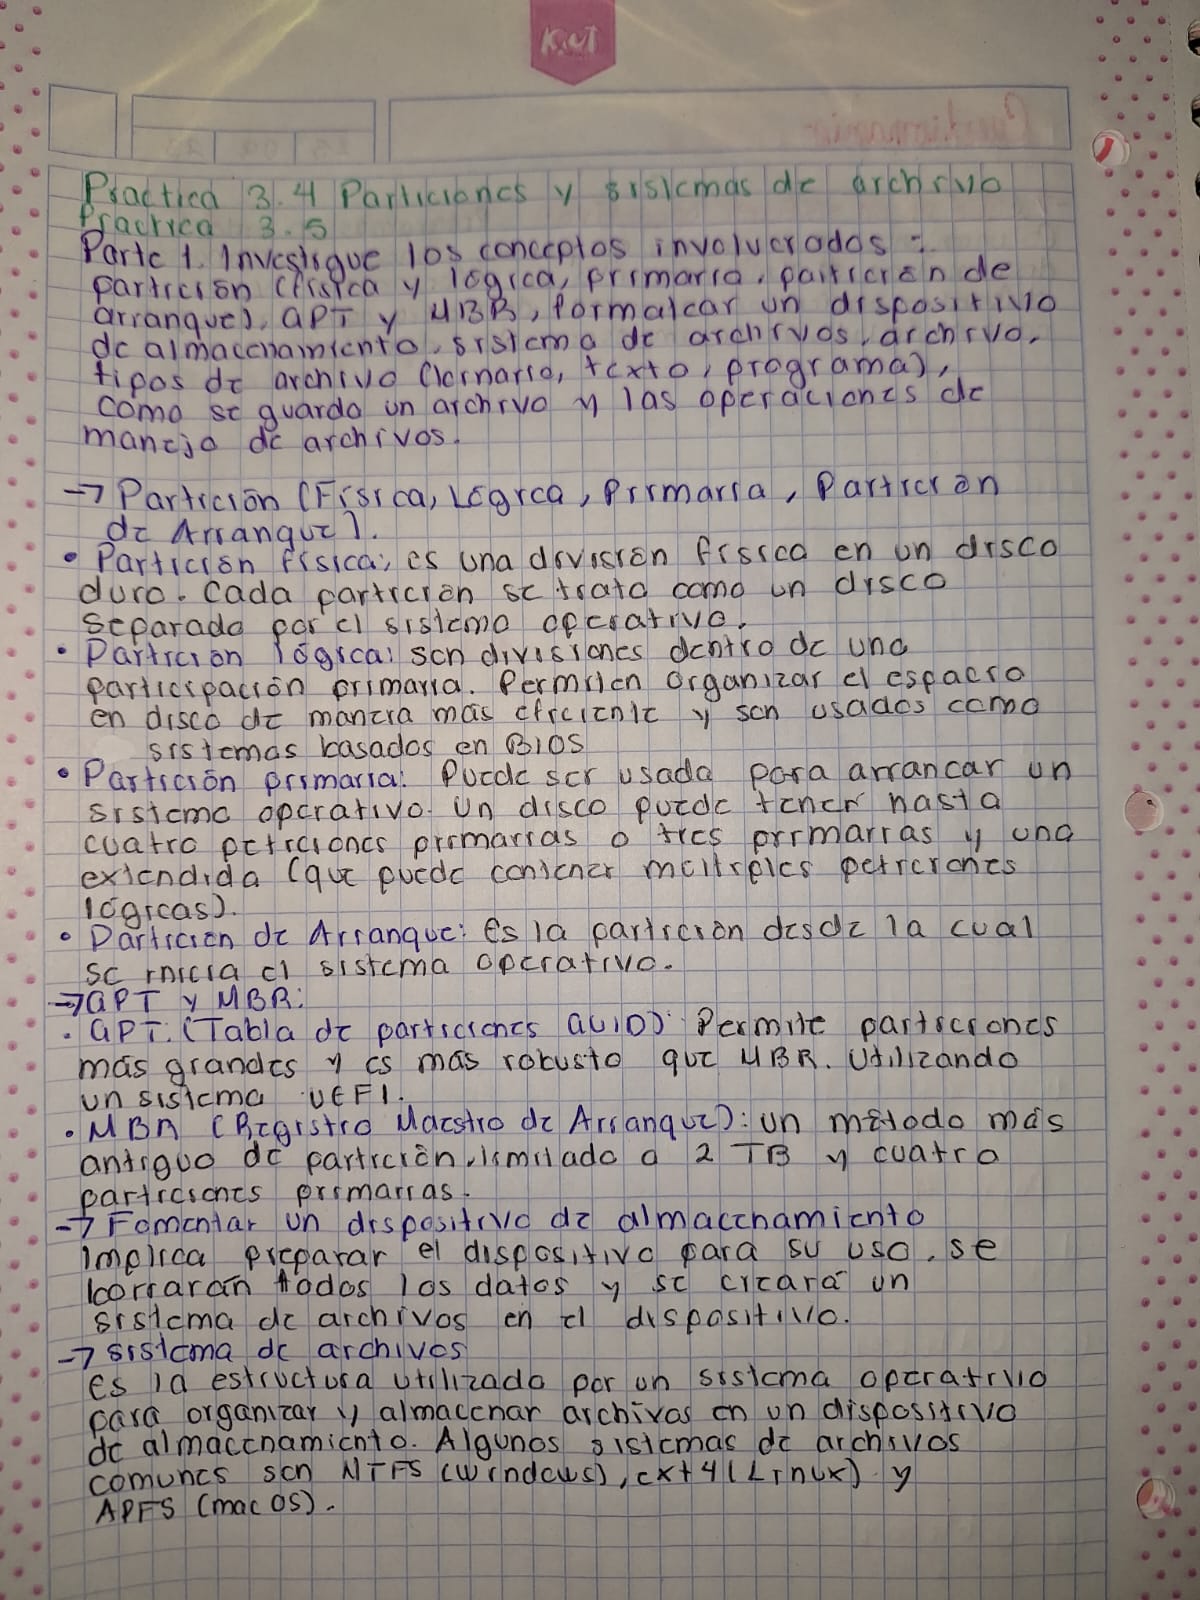 K.UT
Cuestionario
Practica 3.4 Particiones y sistemas de archivo
Practica 3.5
Parte 1. Investigue los conceptos involucrados:
partición (física y lógica, primaria, partición de
arranque), GPT y MBR, formatear un dispositivo
de almacenamiento, sistema de archivos, archivo,
tipos de archivo (binario, texto, programa),
como se guarda un archivo y las operaciones de
manejo de archivos.
→ Partición (Física, Lógica, Primaria, Partición
de Arranque).
• Partición física: es una división física en un disco
duro. Cada partición se trata como un disco
separado por el sistema operativo.
• Partición lógica: son divisiones dentro de una
participación primaria. Permiten organizar el espacio
en disco de manera más eficiente y son usados como
sistemas basados en BIOS
• Partición primaria: Puede ser usada para arrancar un
sistema operativo. Un disco puede tener hasta
cuatro peticiones primarias o tres primarias y una
extendida (que puede contener multiples peticiones
lógicas).
• Partición de Arranque: Es la partición desde la cual
se inicia el sistema operativo.
→ GPT y MBR:
. GPT. (Tabla de particiones GUID): Permite particiones
más grandes y es más robusto que MBR. Utilizando
un sistema UEFI.
. MBR (Registro Maestro de Arranque): un método más
antiguo de partición, limitado a 2 TB y cuatro
particiones primarias.
→ Fomentar un dispositivo de almacenamiento
Implica preparar el dispositivo para su uso, se
borraran todos los datos y se creará un
sistema de archivos en el dispositivo.
→ sistema de archivos
es la estructura utilizada por un sistema operativo
para organizar y almacenar archivos en un dispositivo
de almacenamiento. Algunos sistemas de archivos
comunes son NTFS (Windows), ext4 (Linux) y
APFS (mac OS).